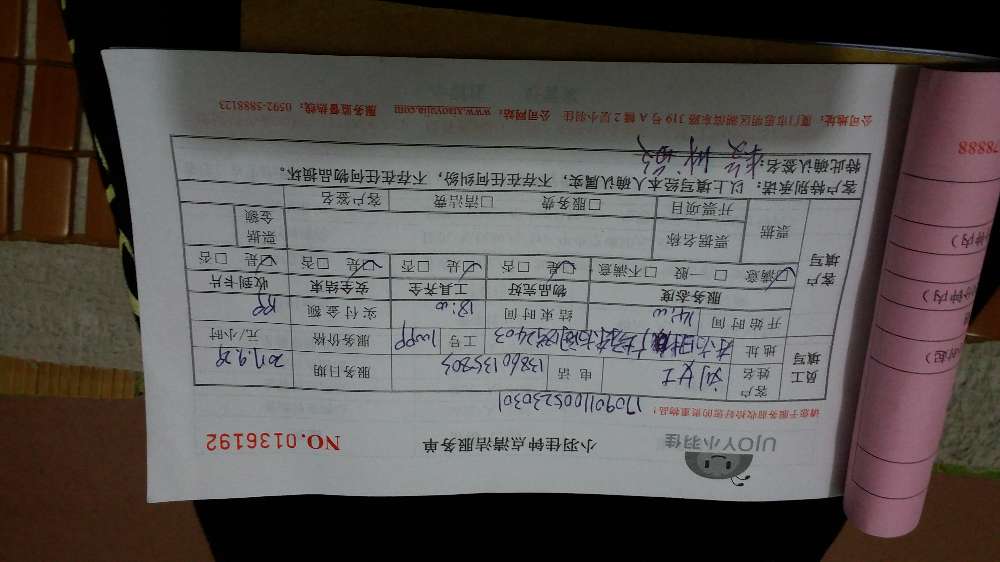 UJOY小羽佳
小羽佳钟点清洁服务单
NO.0136192
请您于服务前收拾好您的贵重物品!
1709011005230301
员工填写
客户姓名 刘女士 电话 13860135803 服务日期 2017.9.28
地址 2403 工号 服务价格 元/小时
开始时间 14:00 结束时间 18:00 实付金额
客户填写
服务态度 物品完好 工具齐全 安全结束 收到卡片
☑满意 □一般 □不满意 ☑是 □否 ☑是 □否 ☑是 □否 ☑是 □否
票据 票据名称 票据金额
开票项目 □服务费 □清洁费 客户签名
客户特别承诺:以上填写经本人确认属实,不存在任何纠纷,不存在任何物品损坏。
特此确认签名:
公司地址:厦门市思明区湖滨东路 319 号 A 幢 2 层小羽佳 公司网站:www.xiaoyujia.com 服务监督热线:0592-5888123
78888